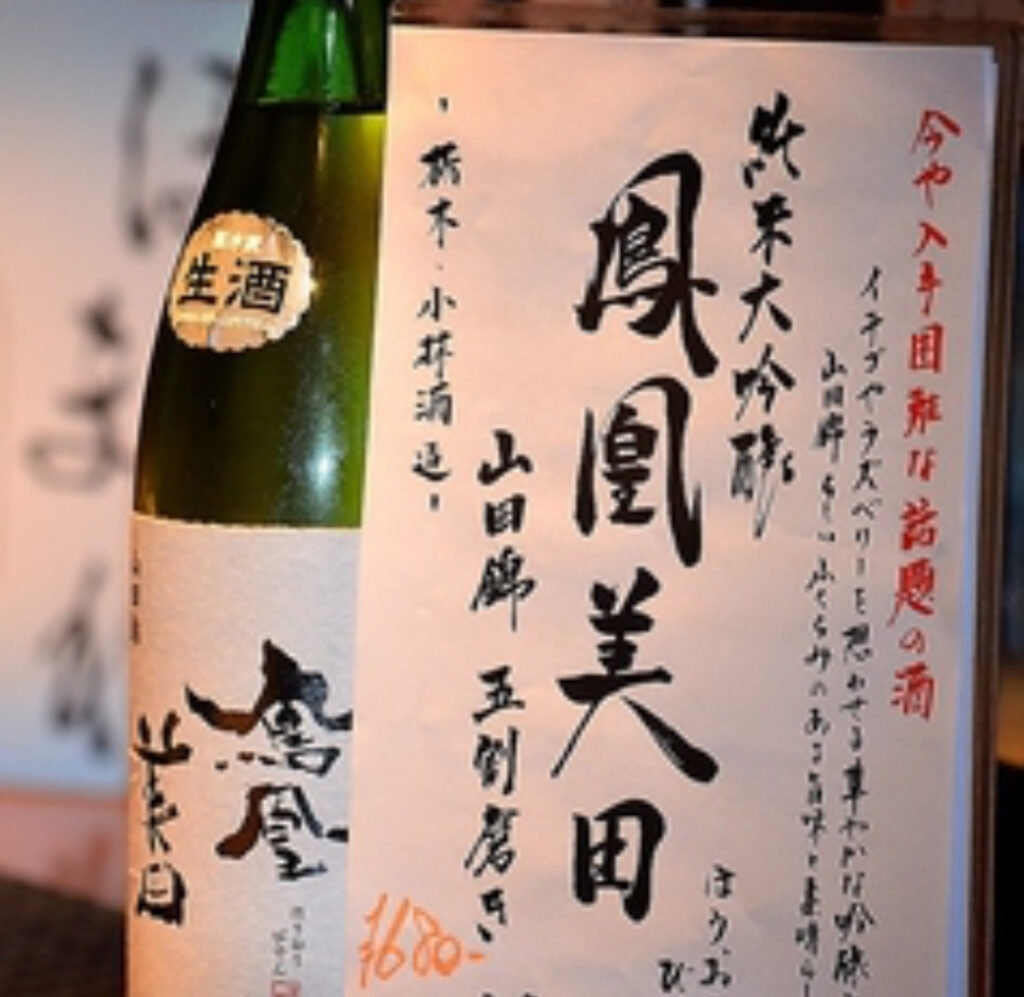 今や入手困難な話題の酒
イチゴやラズベリーを想わせる華やかな吟醸
山田錦らしいふくらみのある旨味と素晴らし
純米大吟醸
鳳凰美田
ほうお
び
山田錦 五割磨き
-栃木・小林酒造-
1680-
生酒
鳳凰
美田